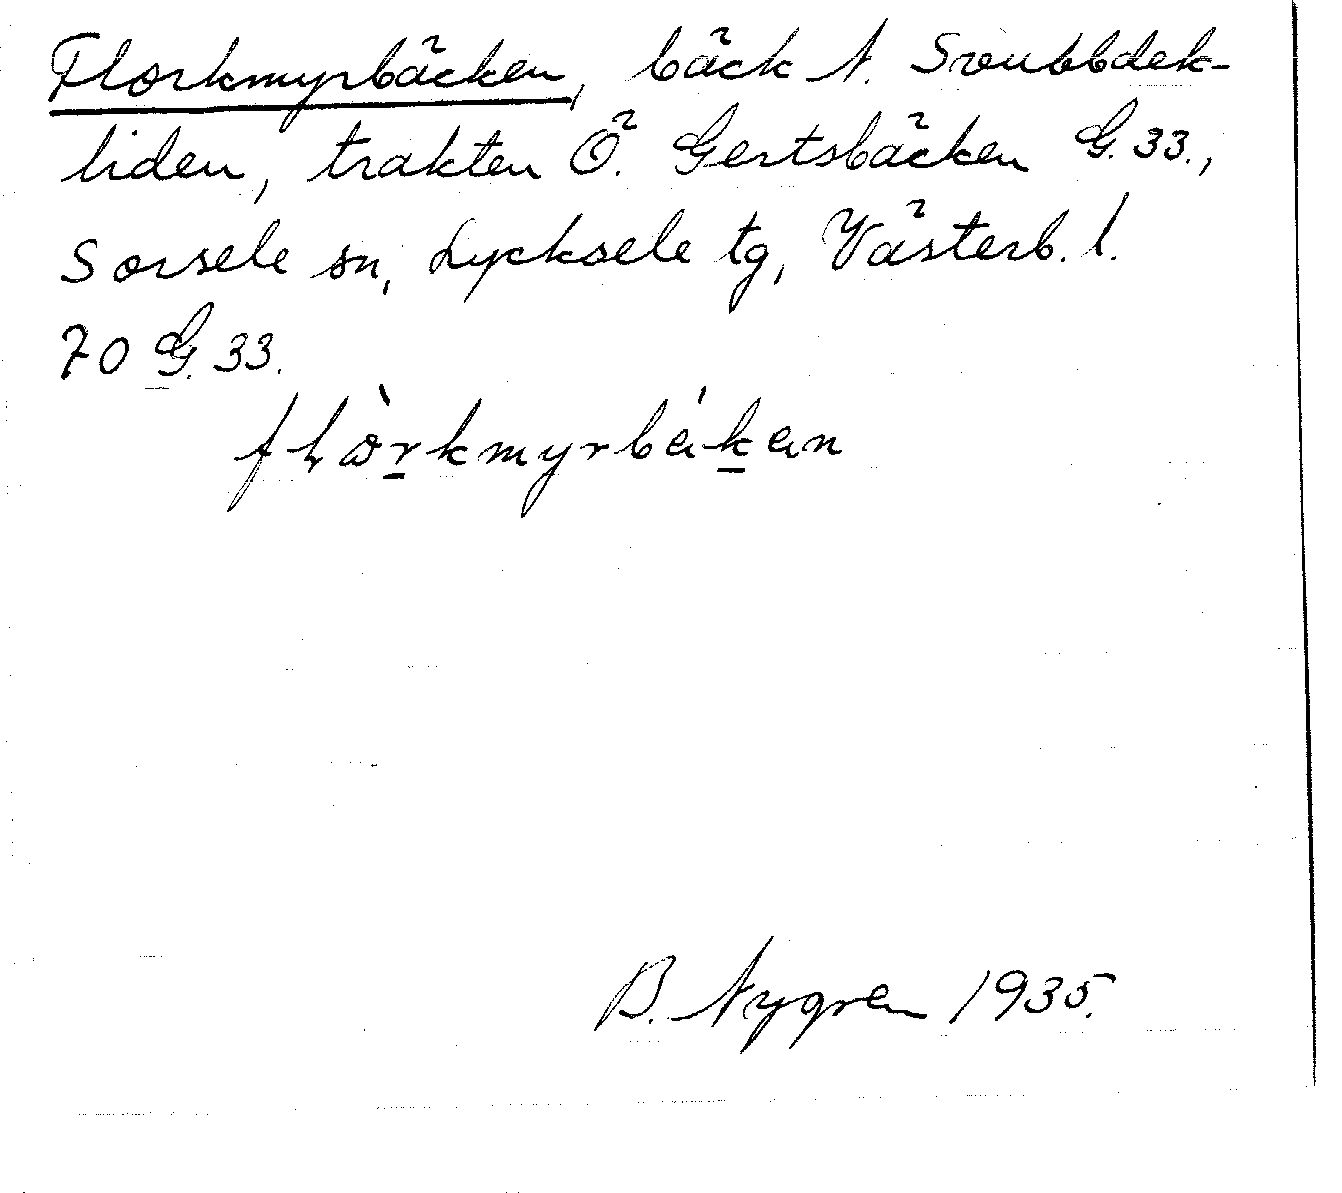 Florkmyrbäcken, bäck N. Svoubbdek-
liden, trakten Ö. Gertsbäcken G. 33.,
Sorsele sn, Lycksele tg, Västerb. l.
70 G. 33.
B. Nygren 1935.